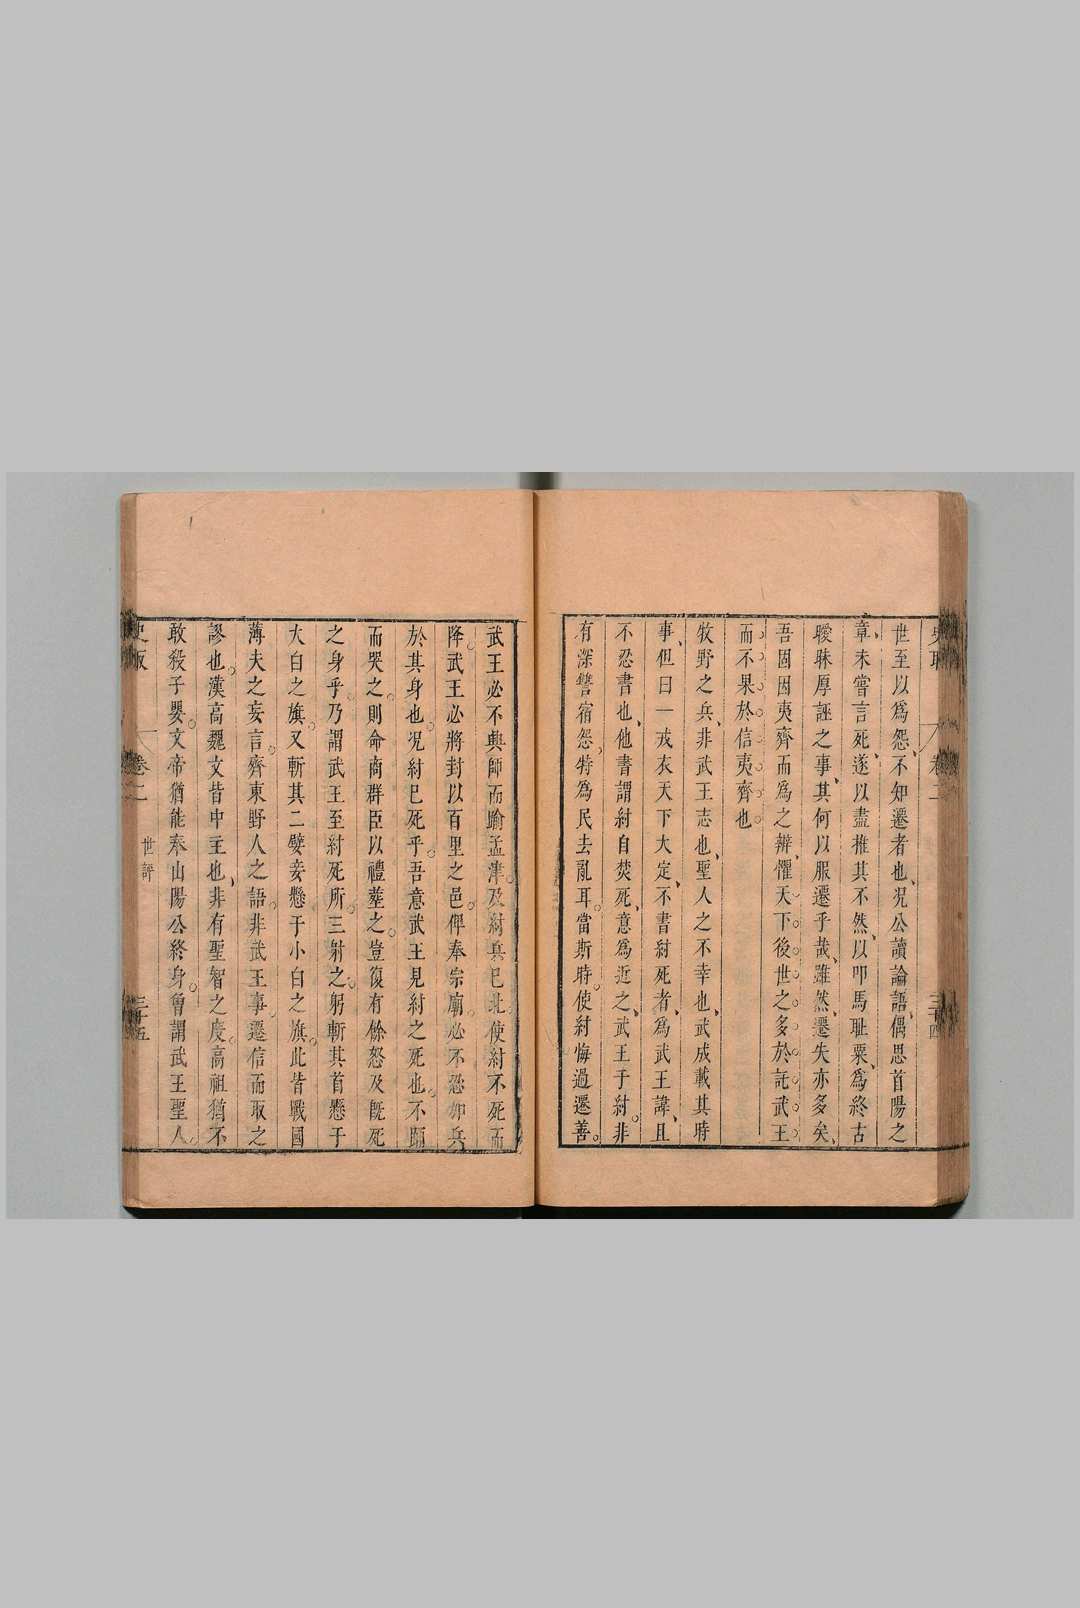 世至以爲怨不知遷者也况公讀論語偶思首陽之
章未嘗言死遂以盡推其不然以叩馬耻粟爲終古
曖昧厚誣之事其何以服遷乎哉雖然遷失亦多矣
吾固因夷齊而爲之辨懼天下後世之多於託武王
而不果於信夷齊也
牧野之兵非武王志也聖人之不幸也武成載其時
事但曰一戎衣天下大定不書紂死者爲武王諱且
不忍書也他書謂紂自焚死意爲近之武王于紂非
有深讐宿怨特爲民去亂耳當斯時使紂悔過遷善
武王必不興師而踰孟津及紂兵已北使紂不死而
降武王必將封以百里之邑俾奉宗廟必不恐加兵
於其身也况紂已死乎吾意武王見紂之死也不踊
而哭之則命商群臣以禮塟之豈復有餘怒及既死
之身乎乃謂武王至紂死所三射之躬斬其首懸于
大白之旗又斬其二嬖妾懸于小白之旗此皆戰國
薄夫之妄言齊東野人之語非武王事遷信而取之
謬也漢高魏文皆中主也非有聖智之度高祖猶不
敢殺子嬰文帝猶能奉山陽公終身曾謂武王聖人
卷二 世譜 三十五